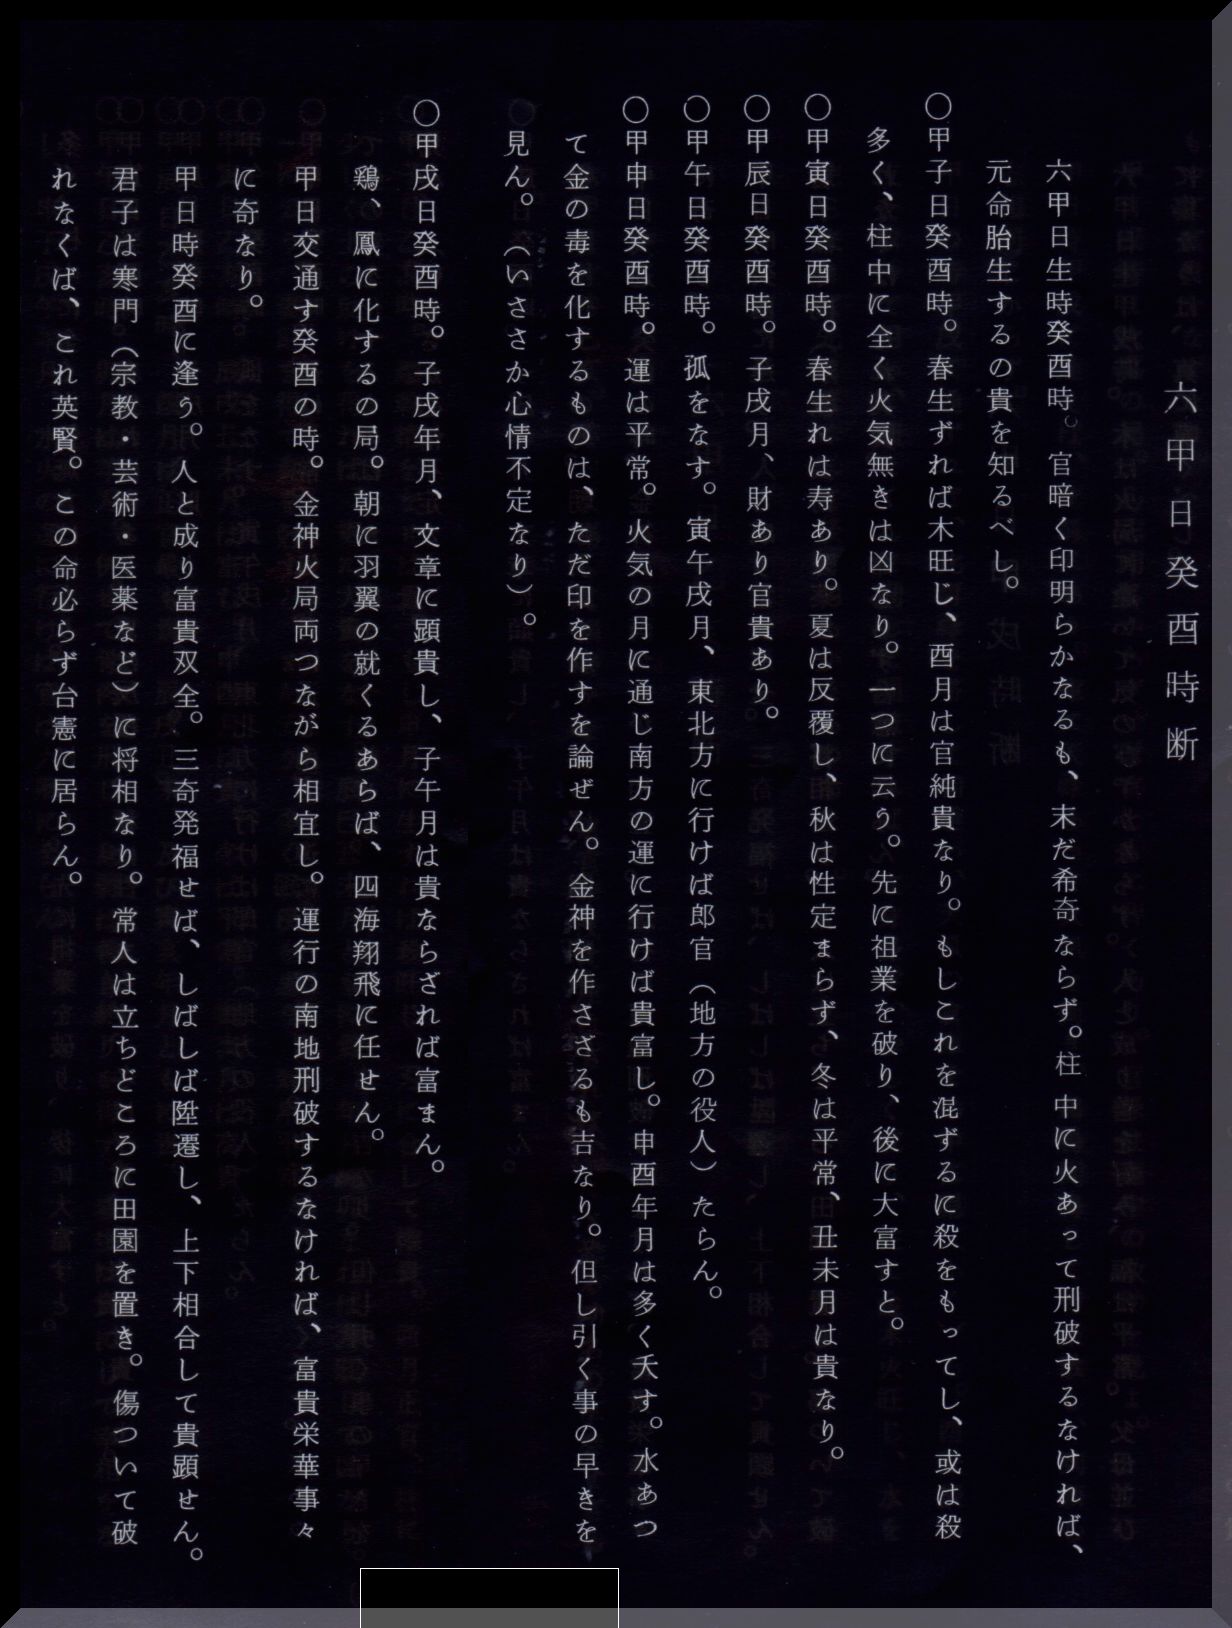 六甲日癸酉時断
六甲日生時癸酉時。官暗く印明らかなるも、末だ希奇ならず。柱中に火あって刑破するなければ、
元命胎生するの貴を知るべし。
〇甲子日癸酉時。春生ずれば木旺じ、酉月は官純貴なり。もしこれを混ずるに殺をもってし、或は殺
多く、柱中に全く火気無きは凶なり。一つに云う。先に祖業を破り、後に大富すと。
〇甲寅日癸酉時。春生れは寿あり。夏は反覆し、秋は性定まらず、冬は平常、丑未月は貴なり。
〇甲辰日癸酉時。子戌月、財あり官貴あり。
〇甲午日癸酉時。孤をなす。寅午戌月、東北方に行けば郎官（地方の役人）たらん。
〇甲申日癸酉時。運は平常。火気の月に通じ南方の運に行けば貴富し。申酉年月は多く夭す。水あつ
て金の毒を化するものは、ただ印を作すを論ぜん。金神を作さざるも吉なり。但し引く事の早きを
見ん。（いささか心情不定なり）。
〇甲戌日癸酉時。子戌年月、文章に顕貴し、子午月は貴ならざれば富まん。
鶏、鳳に化するの局。朝に羽翼の就くるあらば、四海翔飛に任せん。
甲日交通す癸酉の時。金神火局両つながら相宜し。運行の南地刑破するなければ、富貴栄華事々
に奇なり。
甲日時癸酉に逢う。人と成り富貴双全。三奇発福せば、しばしば陞遷し、上下相合して貴顕せん。
君子は寒門（宗教・芸術・医薬など）に将相なり。常人は立ちどころに田園を置き。傷ついて破
れなくば、これ英賢。この命必らず台憲に居らん。